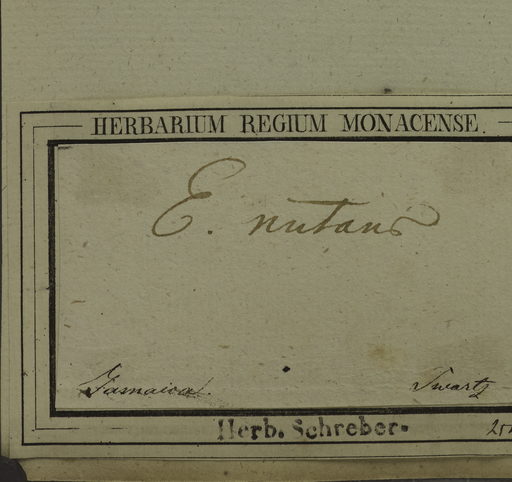 HERBARIUM REGIUM MONACENSE.
E. nutans
Jamaica. Swartz
Herb. Schreber.